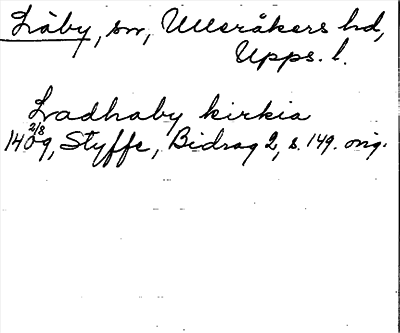 Läby, sn, Ulleråkers hd,
Upps. l.
Ladhaby kirkia
2/8
1409, Styffe, Bidrag 2, s. 149. orig.